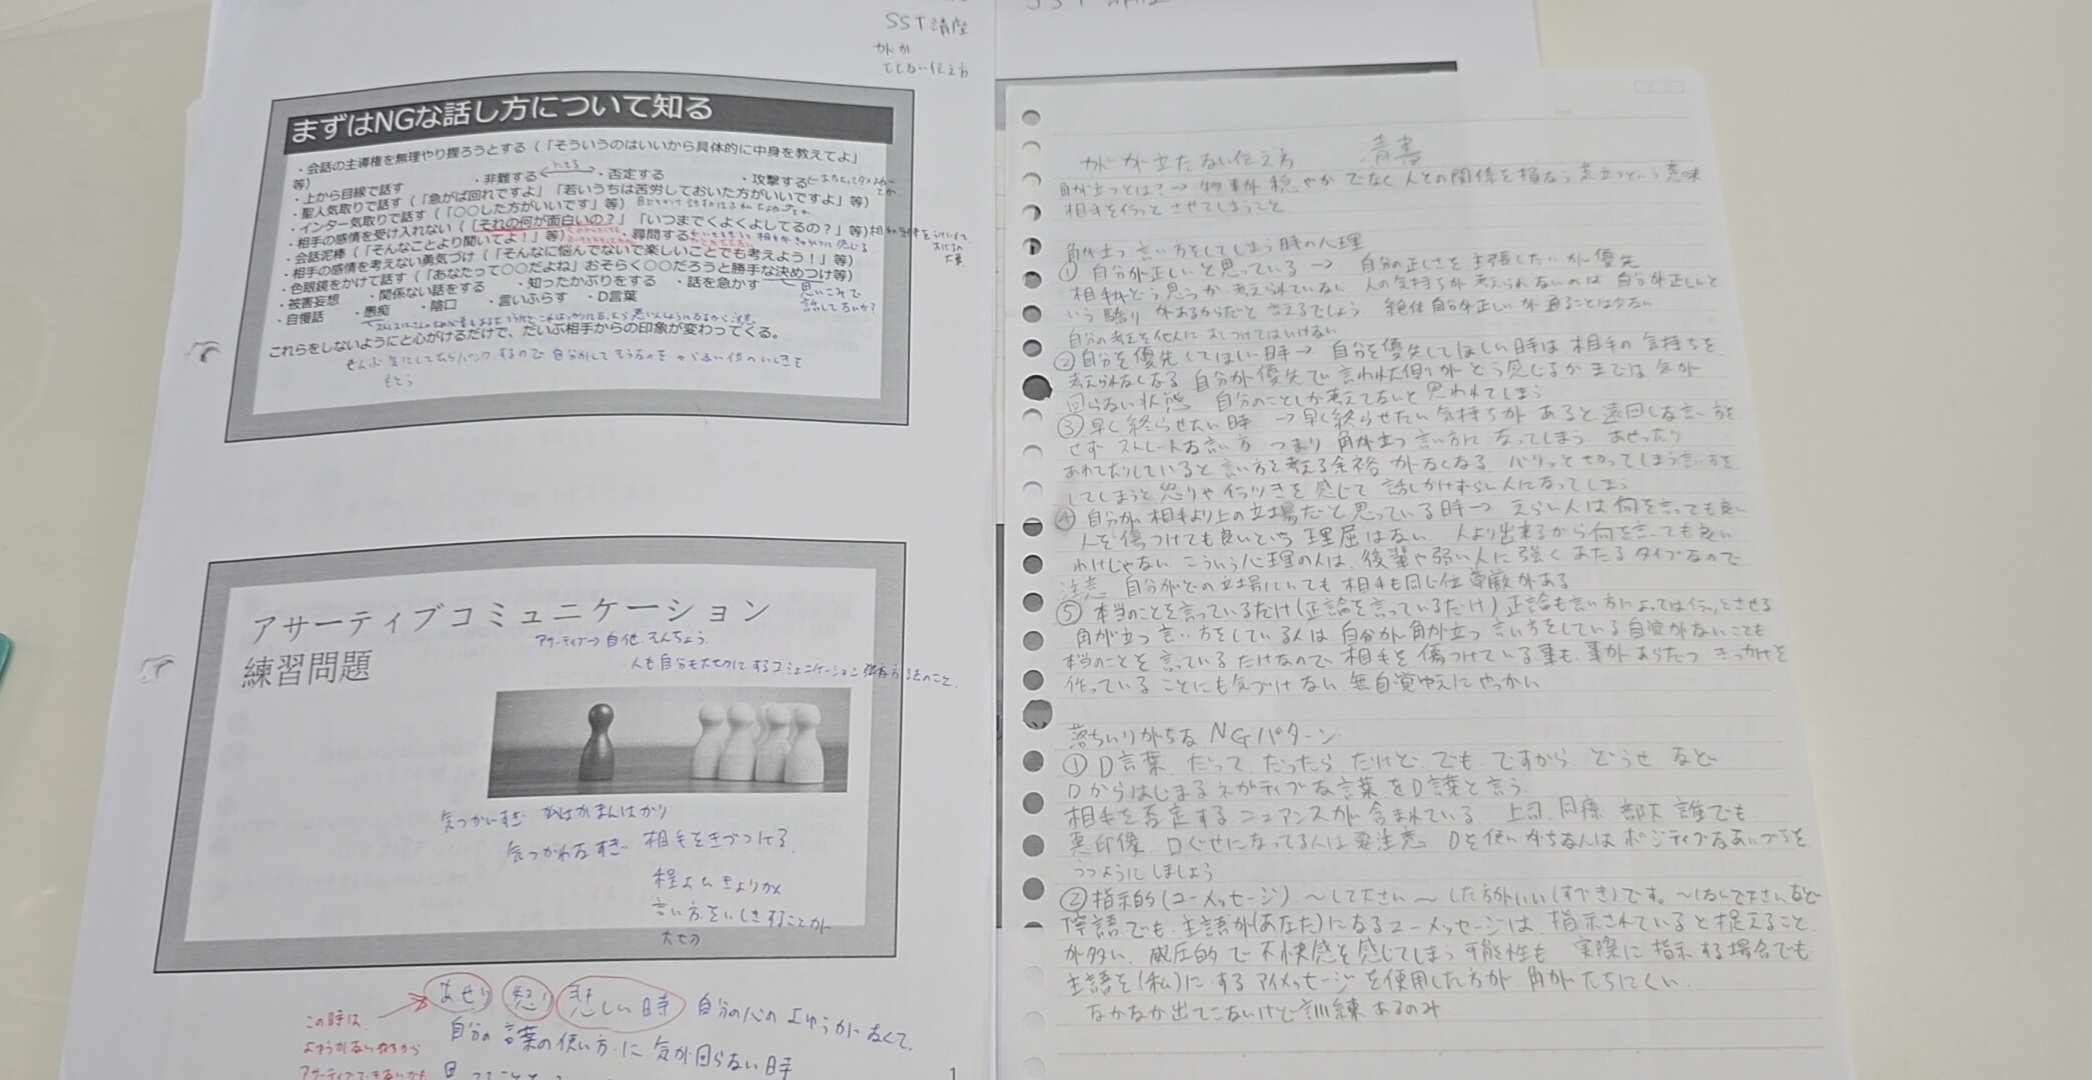 SST講座
かどが
たたない伝え方
まずはNGな話し方について知る
・会話の主導権を無理やり握ろうとする（「そういうのはいいから具体的に中身を教えてよ」
等）
・非難する ・否定する ・攻撃する
にてる
・上から目線で話す
・聖人気取りで話す（「急がば回れですよ」「若いうちは苦労しておいた方がいいですよ」等）
・インター気取りで話す（「〇〇した方がいいです」等）
・相手の感情を受け入れない（「それの何が面白いの？」「いつまでくよくよしてるの？」等）
・会話泥棒（「そんなことより聞いてよ！」等） ・尋問する
・相手の感情を考えない勇気づけ（「そんなに悩んでないで楽しいことでも考えよう！」等）
・色眼鏡をかけて話す（「あなたって〇〇だよね」おそらく〇〇だろうと勝手な決めつけ等）
・被害妄想 ・関係ない話をする ・知ったかぶりをする ・話を急かす
・自慢話 ・愚痴 ・陰口 ・言いふらす ・D言葉
思いこみで
話してないか？
これらをしないようにと心がけるだけで、だいぶ相手からの印象が変わってくる。
ぜんぶ気にしてたらパンクするので 自分がしてそうなのを からない位のいしきを
もとう
アサーティブコミュニケーション
練習問題
アサーティブ→自他 そんちょう
人も自分も大切にするコミュニケーション 方法のこと。
気つかいすぎ 自分はがまんばかり
気つかわなすぎ 相手をきづつける
程よいきょりかん
言い方をいしきすることが
大せつ
あせり 怒り 悲しい時 自分の心のよゆうがなくて、
自分の言葉の使い方に気が回らない時
この時は
よゆうがないだろうから
アサーティブできないかも
1
かどが立たない伝え方 清書
角が立つとは？→物事が穏やかでなく人との関係を損なう 荒立つという意味
相手をイラっとさせてしまうこと
角が立つ言い方をしてしまう時の心理
①自分が正しいと思っている → 自分の正しさを主張したいが優先
相手がどう思うか考えられていない 人の気持ちが考えられないのは自分が正しいと
いう驕りがあるからだと言えるでしょう 絶体自分が正しいが通ることは少ない
自分の考えを他人におしつけてはいけない
②自分を優先してほしい時→ 自分を優先してほしい時は相手の気持ちを
考えられなくなる 自分が優先で言われた側がどう感じるかまでは気が
回らない状態 自分のことしか考えてないと思われてしまう
③早く終らせたい時 → 早く終らせたい気持ちがあると遠回しな言い方を
せず ストレートな言い方 つまり角が立つ言い方になってしまう あせったり
あわてたりしていると言い方を考える余裕がなくなる バリッと切ってしまう言い方を
してしまうと怒りやイラツキを感じて 話しかけずらい人になってしまう
④自分が相手より上の立場だと思っている時→ えらい人は何を言っても良い
人を傷つけても良いという理屈はない 人より出来るから何を言っても良い
わけじゃない こういう心理の人は、後輩や弱い人に強くあたるタイプなので
注意 自分がどの立場にいても相手も同じ位尊厳がある
⑤本当のことを言っているだけ（正論を言っているだけ）正論も言い方によってはイラッとさせる
角が立つ言い方をしている人は自分が角が立つ言い方をしている自覚がないことも
本当のことを言っているだけなので、相手を傷つけている事も、事があらだつきっかけを
作っていることにも気づけない、無自覚ゆえにやっかい
落ちいりがちなNGパターン
①D言葉 だって、だったら、だけど、でも、ですから、どうせ など
Dからはじまるネガティブな言葉をD言葉と言う。
相手を否定するニュアンスが含まれている 上司、同僚、部下 誰でも
悪印像、口ぐせになってる人は要注意 Dを使いがちな人はポジティブなあいづちを
うつようにしましょう
②指示的（ユーメッセージ） 〜して下さい 〜した方がいい（すべき）です。〜しないで下さいなど
敬語でも、主語が（あなた）になるユーメッセージは、指示されていると捉えること
が多い、威圧的で不快感を感じてしまう可能性も 実際に指示する場合でも
主語を（私）にするアイメッセージを使用した方が角がたちにくい
なかなか出てこないけど訓練あるのみ